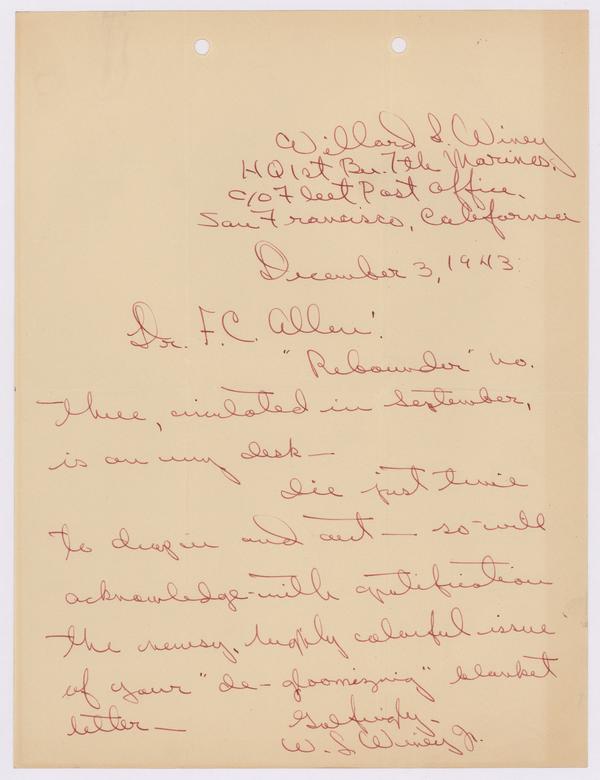 Willard S. Winey
HQ 1st Bn. 7th Marines.
c/o Fleet Post Office.
San Francisco, California
December 3, 1943.
Dr. F. C. Allen:
"Rebounder" no.
three, circulated in September,
is on my desk—
I've just time
to drop in and out — so-will
acknowledge-with gratification
the newsy, highly colorful issue
of your "de-gloomizing" blanket
letter—
Golfingly-
W. S. Winey Jr.